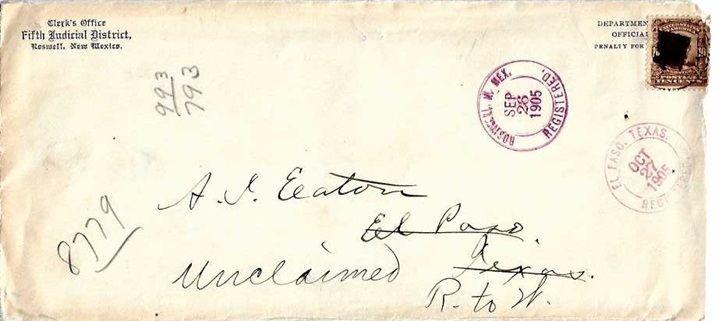 Clerk's Office
Fifth Judicial District,
Roswell, New Mexico.
DEPARTMEN
OFFICIA
PENALTY FOR
993
793
ROSWELL, N. MEX.
SEP
26
1905
REGISTERED.
EL PASO, TEXAS.
OCT
27
1905
8779
A. I. Eaton
El Paso,
Texas.
Unclaimed
R. to W.